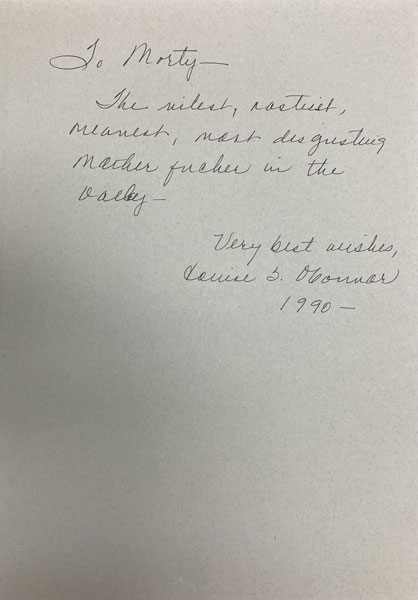 To Morty—
The vilest, nastiest,
meanest, most disgusting
Mother fucker in the
Valley—
Very best wishes,
Louise S. O'Connor
1990—